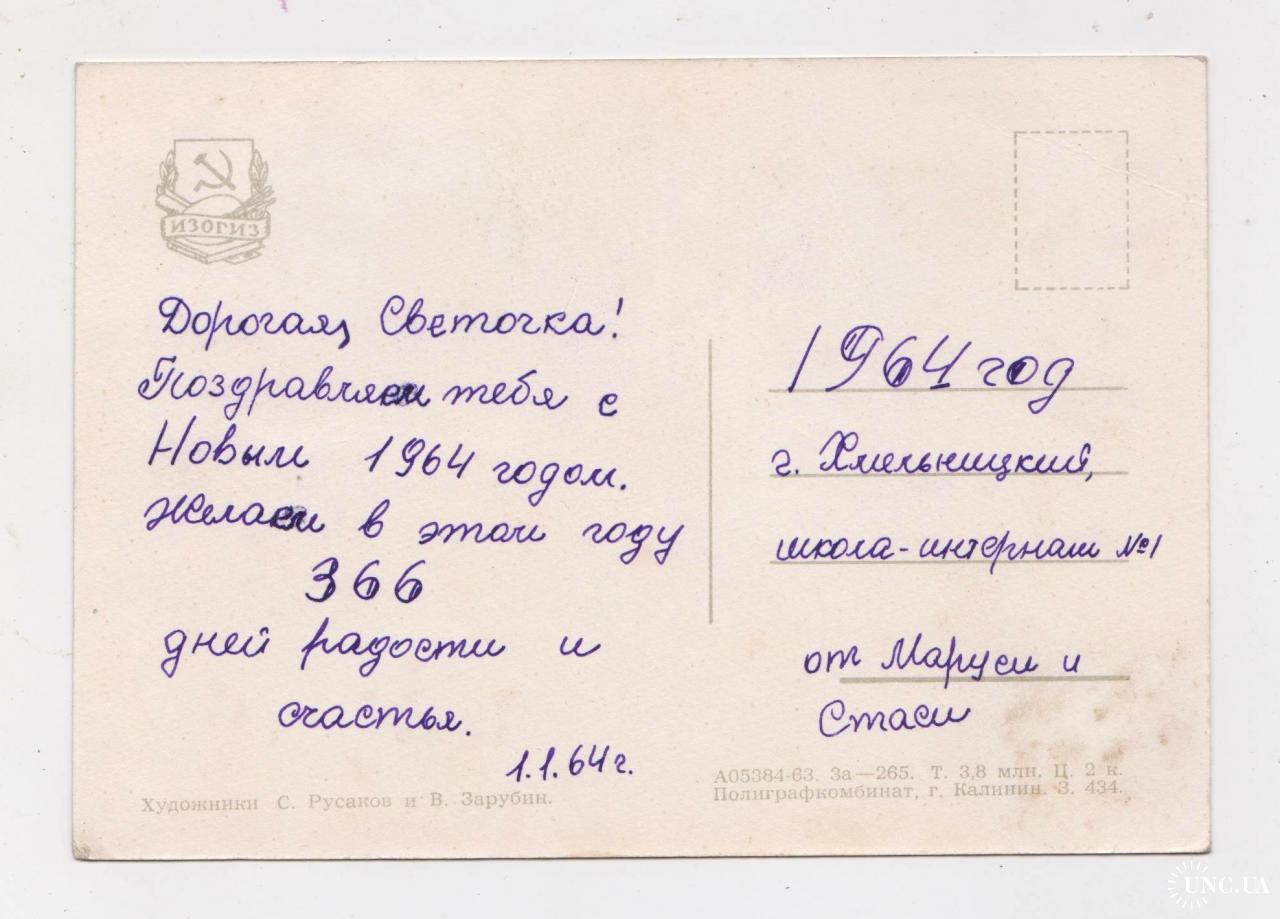 ИЗОГИЗ
Дорогая, Светочка!
Поздравляем тебя с
Новым 1964 годом.
Желаем в этом году
366
дней радости и
счастья.
1.1.64 г.
Художники С. Русаков и В. Зарубин.
1964 год
г. Хмельницкий,
школа-интернат №1
от Маруси и
Стаси
А05384-63. За—265. Т. 3,8 млн. Ц. 2 к.
Полиграфкомбинат, г. Калинин. З. 434.
UNC.UA